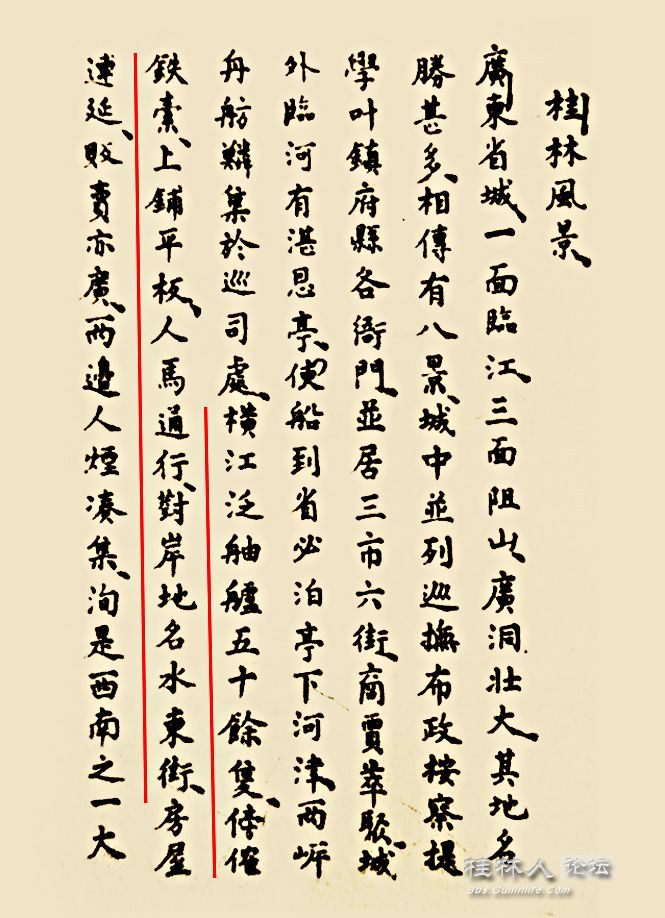 桂林風景
廣東省城、一面臨江、三面阻山、廣洞壯大、其地名
勝甚多、相傳有八景、城中並列巡撫布政桉察提
學叶鎮府縣各衙門、並居三市六街、商賈萃聚、城
外臨河有湛恩亭、使船到省必泊亭下河津、兩岸
舟舫鱗集於巡司處、橫江泛舳艫五十餘隻、
鉄索、上鋪平板、人馬通行、對岸地名水東街、房屋
連延、販賣亦廣、兩邊人煙湊集、洵是西南之一大
桂林人论坛
bbs.Guilinlife.Com